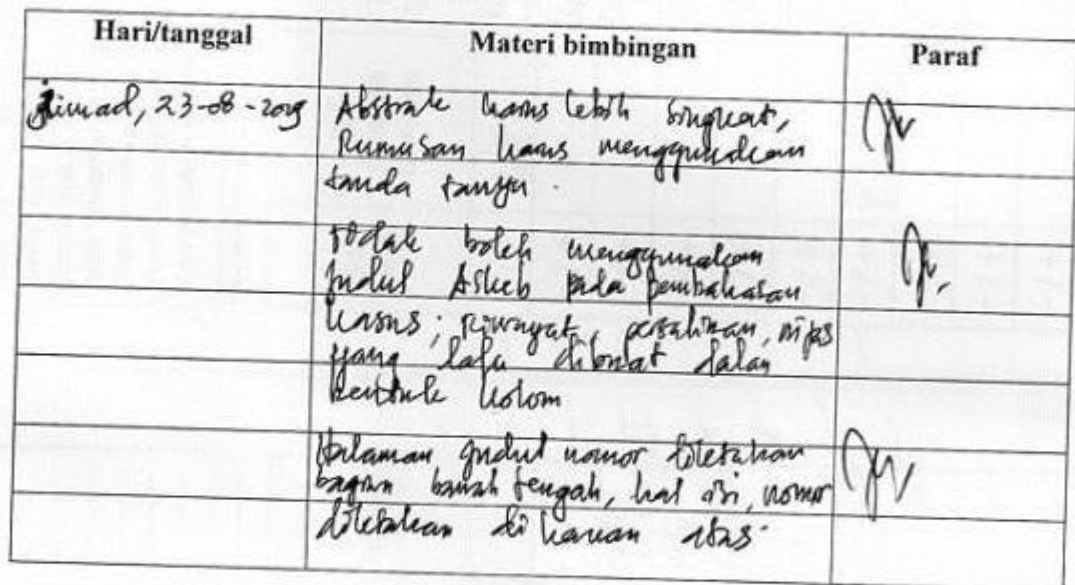 Hari/tanggal Materi bimbingan Paraf
Jumad, 23-08-2019 Abstrak harus lebih singkat,
Rumusan harus menggunakan
tanda tanya.
tidak boleh menggunakan
judul Askeb pada pembahasan
kasus; riwayat, persalinan, nifas
yang lalu dibuat dalam
bentuk kolom
Halaman judul nomor diletakan
bagian bawah tengah, hal isi, nomor
diletakan di kanan atas.